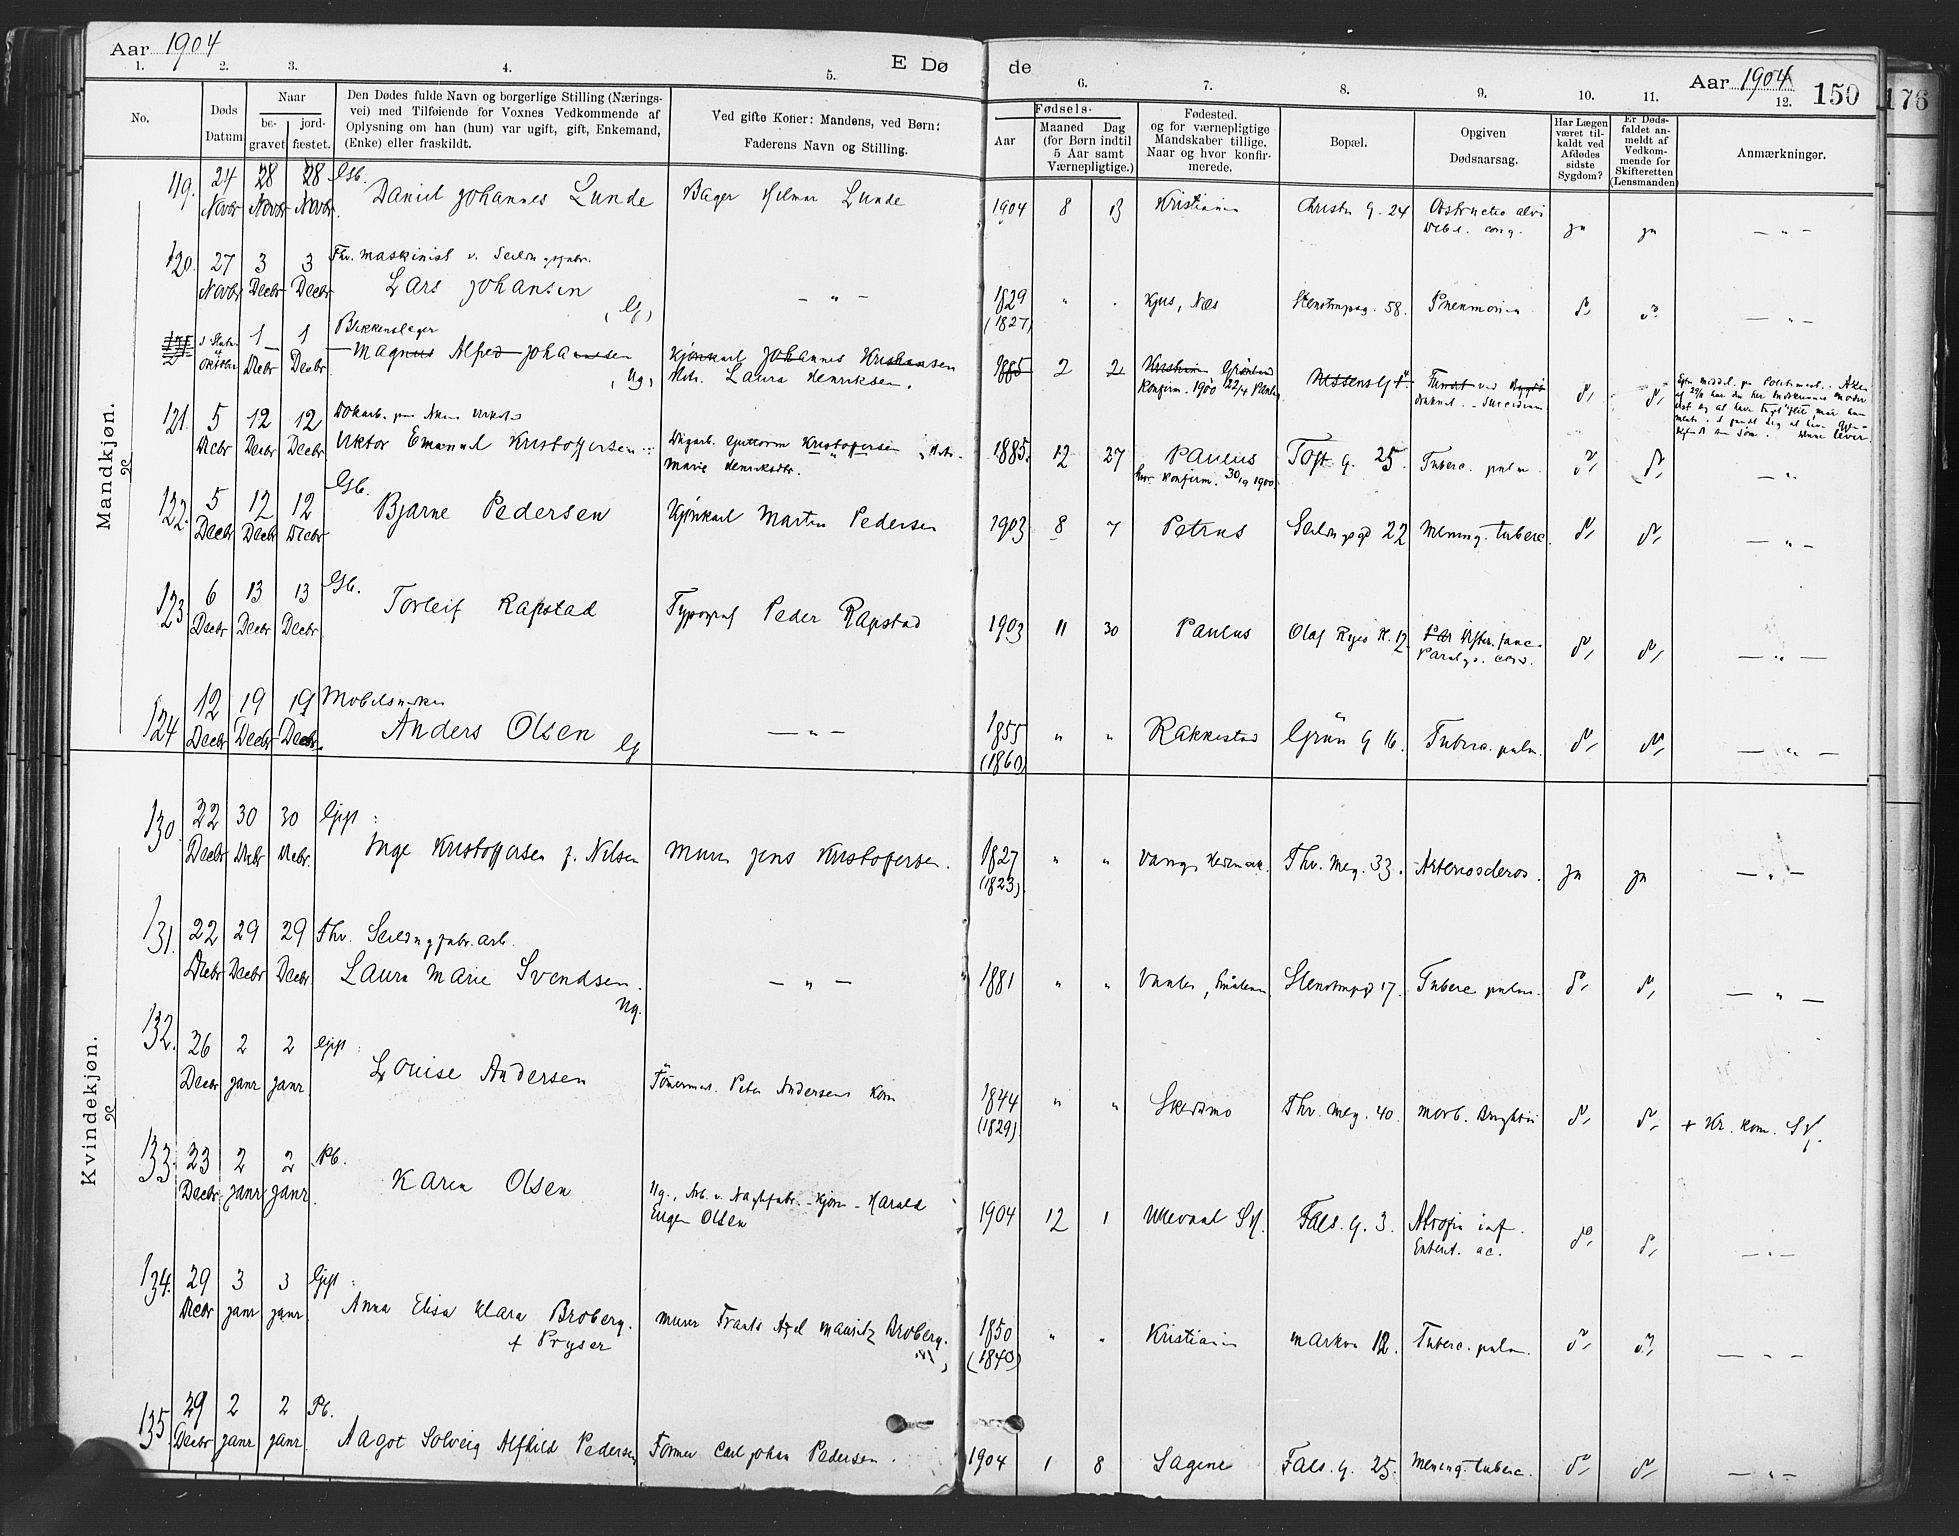 Aar 1904
E Dø de
Aar 1904
150
176
1. 2. 3. 4. 5. 6. 7. 8. 9. 10. 11. 12.
No.
Døds Datum
Naar
be-gravet
jord-fæstet.
Den Dødes fulde Navn og borgerlige Stilling (Nærings-
vei) med Tilføiende for Voxnes Vedkommende af
Oplysning om han (hun) var ugift, gift, Enkemand,
(Enke) eller fraskildt.
Ved gifte Koner: Mandens, ved Børn:
Faderens Navn og Stilling.
Fødsels-
Aar
Maaned Dag
(for Børn indtil
5 Aar samt
Værnepligtige.)
Fødested.
og for værnepligtige
Mandskaber tillige.
Naar og hvor konfir-
merede.
Bopæl.
Opgiven
Dødsaarsag.
Har Lægen
været til-
kaldt ved
Afdødes
sidste
Sygdom?
Er Døds-
faldet an-
meldt af
Vedkom-
mende for
Skifteretten
(Lensmanden)
Anmærkninger.
Mandkjøn.
119. 24 28 28 Gb.
Novbr Novbr Novbr. Daniel Johannes Lunde Bager Hilmar Lunde 1904 8 13 Kristiania Christn G. 24 Obstructio alvi
Debil. cong. ja ja — „ —
120. 27 3 3 Fhv. maskinist v. Seildugsfabr.
Novbr Decbr Decbr Lars Johansen (G) — „ — 1829 „ . Kjus, Næs Stenstrupg. 58. Pneumonia do do — „ —
(1827)
121 1 1 Blikkenslager
Oktober Decbr Decbr Magnus Alfred Johannsen (Ug) Kjørekarl Johannes Kristiansen 1885 2 2 Kristiania
Laura Henriksen. Konfirm. 1900 22/4 Suicidium do do
121. 5 12 12
Decbr Decbr Decbr. Viktor Emanuel Kristoffersen Guttorm Kristofersen 1885. 12 27 Paulus Toft G. 25. Tuberc. pulm. do do — „
Marie Henriksdtr. Konfirm. 30/9 1900
122. 5 12 12 Gb.
Decbr Decbr Decbr Bjarne Pedersen Kjørekarl Martin Pedersen 1903 8 7 Petrus Seildugsgd 22 Mening. tuberc. do do — „ —
123 6 13 13 Gb.
Decbr Decbr Decbr Torleif Rapstad Typograf Peder Rapstad 1903 11 30 Paulus Olaf Ryes Pl. 12. do do — „ —
124 12 19 19 Møbelsnedker
Decbr Decbr Decbr. Anders Olsen G — „ — 1855 „ „ Rakkestad Grün G 16. Tuberc. pulm. do do — „ —
(1860)
Kvindekjøn.
130. 22 30 30 Gift:
Decbr Decbr Decbr. Inge Kristoffersen f. Nilsen Murer Jens Kristofersen. 1827 „ „ Vang, Hedemark. Thv. Mey. 33. Arterioscleros. ja ja — „ —
(1823)
131. 22 29 29 Fhv. Seildugsfabr. arb.
Decbr Decbr Decbr. Laura Marie Svendsen. Ug. — „ — 1881 „ „ Vaaler, Smaalenene Stenstrupgd 17. Tuberc pulm. do do — „ —
132. 26 2 2 Gift:
Decbr Janr Janr. Louise Andersen Tømmerm. Peter Andersens Kone 1844 „ „ Skedsmo Thv. Mey. 40. Morb. Brightii do do + Kr. Kom. Sf.
(1829)
133. 23 2 2 Pb.
Decbr Janr Janr. Karen Olsen Ug., Arb. v. Naglfabr. - Kjørs - Harald 1904 12 1 Ullevaal Sf. Fals. G. 3. Atrofia inf.
Eugen Olsen Enterit. ac. do do — „ —
134. 29 3 3 Gift:
Decbr Janr Janr. Anna Elisa Klara Broberg. Murer Frants Axel Mauritz Broberg. 1850 „ „ Kristiania Markvn 12. Tuberc. pulm. do do — „ —
f Pryser (1840)
135. 29 2 2 Pb.
Decbr Janr Janr. Aagot Solveig Alfhild Pedersen Former Carl Johan Pedersen. 1904 1 8 Sagene Fals. G. 25. Mening. tuberc. do do — „ —